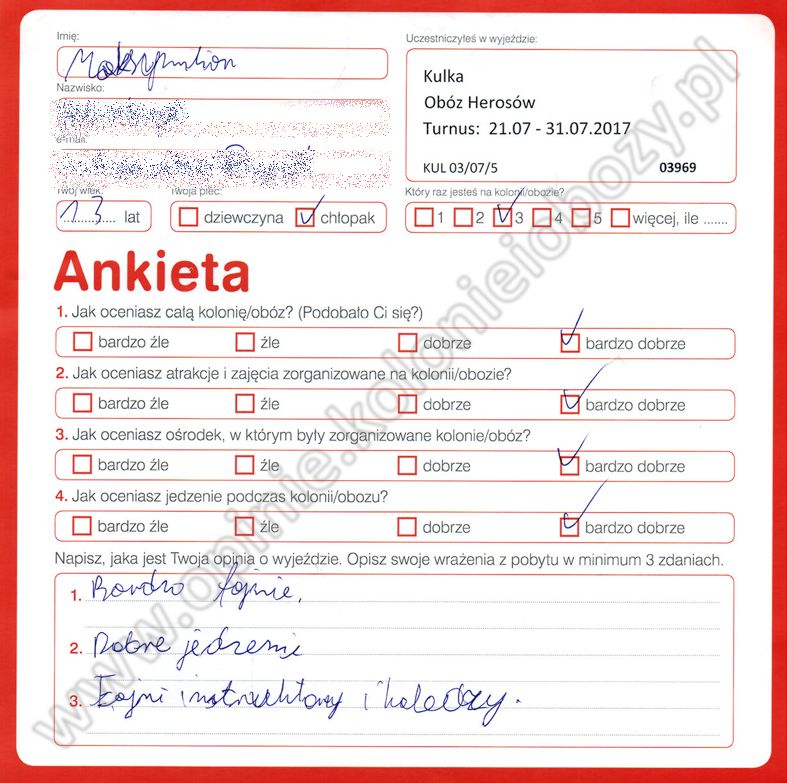 Imię:
Maksymilian
Uczestniczyłeś w wyjeździe:
Kulka
Obóz Herosów
Turnus: 21.07 - 31.07.2017
KUL 03/07/5 03969
Nazwisko:
e-mail:
Twój wiek: Twoja płeć: Który raz jesteś na kolonii/obozie?
13 lat dziewczyna chłopak 1 2 3 4 5 więcej, ile .......
Ankieta
1. Jak oceniasz całą kolonię/obóz? (Podobało Ci się?)
bardzo źle źle dobrze bardzo dobrze
2. Jak oceniasz atrakcje i zajęcia zorganizowane na kolonii/obozie?
bardzo źle źle dobrze bardzo dobrze
3. Jak oceniasz ośrodek, w którym były zorganizowane kolonie/obóz?
bardzo źle źle dobrze bardzo dobrze
4. Jak oceniasz jedzenie podczas kolonii/obozu?
bardzo źle źle dobrze bardzo dobrze
Napisz, jaka jest Twoja opinia o wyjeździe. Opisz swoje wrażenia z pobytu w minimum 3 zdaniach.
1. Bardzo fajnie.
2. Dobre jedzenie
3. Fajni instruktorzy i koledzy.
www.opinie.kolonieiobozy.pl